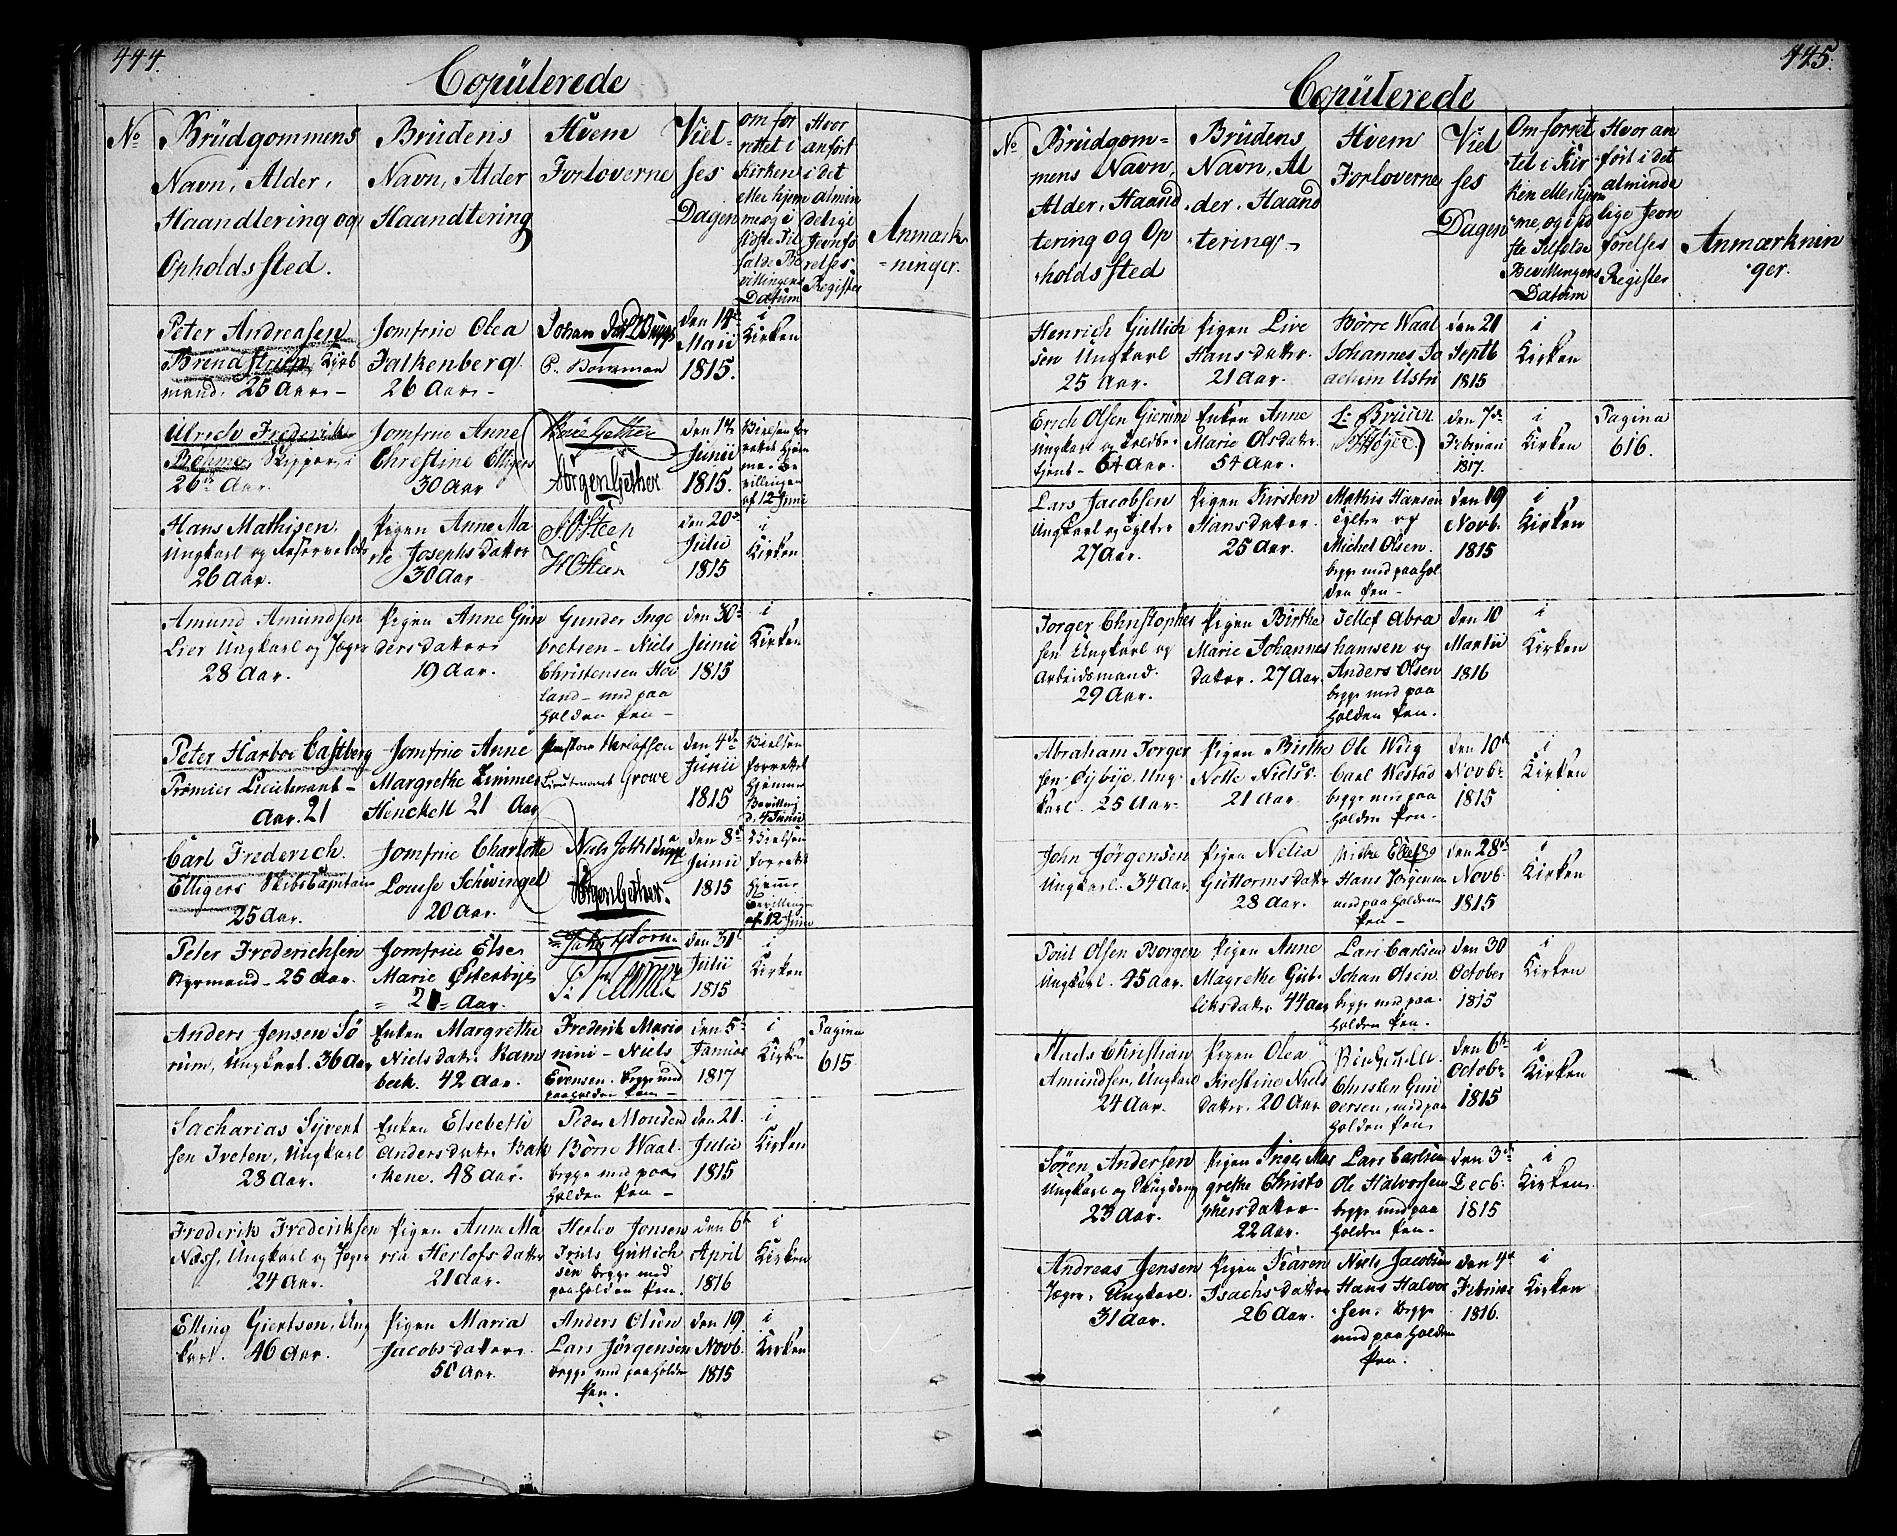 444.
Copülerede
No
Brüdgommens
Navn, Alder,
Haandtering og
Opholdssted.
Brüdens
Navn, Alder
Haandtering
Hvem
Forloverne
Viel-
ses
Dagen
om for
rettet i
Kirken
eller hjem
me og i
sidste Til
fælde Be
villingens
Datum
Hvor
anført
i det
almin
delige
Jevnfø
relses-
Register
Anmærk-
-ninger.
Peter Andreasen
Brendstrup
mand. 25 Aar-
Jomfrue Olea
Falkenberg.
26 Aar-
Johan
P. Bowman
den 14de
Maii
1815.
i
Kirken
Ulrich Frederik
Böhme, Skipper,
26 Aar.
Jomfrue Anne
Chrestine Elligers
30 Aar
Börre Gether
Jörgen Gether
den 12
Junii
1815.
Vielsen for
rettet hjem
me. Be
villingen
af 12 Juni
Hans Mathisen
Ungkarl og
26 Aar.
Pigen Anne Ma
rie Josephsdatter
30 Aar
J. Osteen
H Osteen
den 20de
Julii
1815
i
Kirken
Amund Amundsen
Lier Ungkarl og Jæger
28 Aar.
Pigen Anne Gun
dersdatter
19 Aar.
Gunder Inge
bretsen - Niels
Christensen Hov
land - med paa
holden Pen -
den 30te
Junii
1815
i
Kirken
Peter Harboe Castberg
Premier Lieutenant -
Aar. 21
Jomfrue Anne
Margrethe Zimmer
Henckell 21 Aar
Pastor Herlofsen
Lieutenant Growe
den 4de
Junii
1815
Vielsen
forrettet
hjemme
Bevilling
d. 4 Junii
Carl Frederich
Elligers Skibscapitain
25 Aar.
Jomfrue Charlotte
Louise Schwingel
20 Aar.
Niels
Jörgen Gether.
den 8de
Junii
1815
Vielsen
forrettet
hjemme
Bevillingen
af 12 Junii
Peter Frederichsen
Byemand - 25 Aar.
Jomfrue Else
Marie Österbye
= 21 = Aar.
den 31te
Julii
1815
i
Kirken
Anders Jensen Sö
rum, Ungkarl. 36 Aar
Enken Margrethe
Nielsdatter Ram
beck. 42 Aar.
Frederik Mario
nini - Niels
Evensen. begge med
paaholden Pen -
den 5te
Januar
1817
i
Kirken
Pagina
615.
Sacharias Syvert
sen Tveten, Ungkarl
28 Aar.
Enken Elsebeth
Andersdatter Bak
kene. 48 Aar.
Peder Monsen
Börre Waal.
begge med paa
holden Pen -
den 21.
Julii
1815
i
Kirken
Frederik Frederiksen
Næss, Ungkarl og Jæger
24 Aar.
Pigen Anne Ma
ria Herlofsdatter
21 Aar.
Herlov Jensen
Truls Gullich
sen begge med
paaholden Pen.
den 6te
April
1816
i
Kirken
Elling Giertsen, Ung
karl. 46 Aar.
Pigen Maria
Jacobsdatter.
50 Aar.
Anders Olsen
Lars Jörgensen
begge med paaholden
Pen.
den 19.
Novb.
1815
i
Kirken
445.
Copülerede
No
Brüdgom-
mens Navn,
Alder, Haand
tering og Op
holdssted
Brüdens
Navn, Al
der, Haand
-tering-
Hvem
Forloverne
Viel
ses
Dagen
Om forret
tet i Kir
ken eller hjem
me, og i sid
ste Tilfælde
Bevillingens
Datum
Hvor an
ført i det
alminde
lige Jevn
førelses
Register
Anmærknin
ger.
Henrich Gullich
sen Ungkarl
25 Aar.
Pigen Live
Hansdatter.
21 Aar.
Börre Waal
Johannes Jo
achim Ustri
den 21
Septb
1815
i
Kirken
Erich Olsen Gierum
Ungkarl og Toldbe
tjent - 64 Aar.
Enken Anne
Marie Olsdatter.
54 Aar.
L: Bruun
den 7de
Februari
1817.
i
Kirken
Pagina
616.
Lars Jacobsen
Ungkarl og Cyltre
27 Aar.
Pigen Kirsten
Hansdatter.
25 Aar.
Mathis Hansen
Cyltre og
Michel Olsen.
begge med paahol
den Pen -
den 19
Novb.
1815
i
Kirken
Torger Christopher
sen Ungkarl og
Arbeidsmand.
29 Aar.
Pigen Birthe
Marie Johannes
datter. 27 Aar.
Tellef Abra
hamsen og
Anders Olsen
begge med paa
holden Pen.
den 10
Martii
1816
i
Kirken
Abraham Torger
sen Oybye, Ung-
karl. 25 Aar.
Pigen Birthe
Nette Nielsd.
21 Aar.
Ole Wiig
Carl Westad
begge med paa
holden Pen.
den 10de
Novb.
1815
i
Kirken
John Jörgensen
Ungkarl. 34 Aar.
Pigen Nelia
Guttormsdatter
28 Aar.
Hans Jörgensen
med paaholden
Pen -
den 28de
Novb.
1815
i
Kirken
Poul Olsen Borgen
Ungkarl. 45 Aar.
Pigen Anne
Magrethe Gul
leksdatter 44 Aar
Lars Carlsen
Johan Olsen.
begge med paa-
holden Pen.
den 30
October
1815
i
Kirken
Mads Christian
Amundsen, Ungkarl
24 Aar.
Pigen Olea
Kirestine Niels
datter. 20 Aar
Christen Gun
dersen, med paa
holden Pen.
den 6te
Octobr.
1815
i
Kirken
Sören Andersen
Ungkarl og
23 Aar.
Pigen Inger Mar
grethe Christo
phersdatter.
22 Aar.
Lars Carlsen
Ole Halvorsen
begge med paa
holden Pen.
den 3de
Decb.
1815
i
Kirken.
Andreas Jensen
Jæger, Ungkarl.
31 Aar.
Pigen Karen
Isachsdatter
26 Aar.
Niels Jacobsen
Hans Halvor
sen. begge
med paaholden
Pen.
den 4de
Februar
1816.
i
Kirken